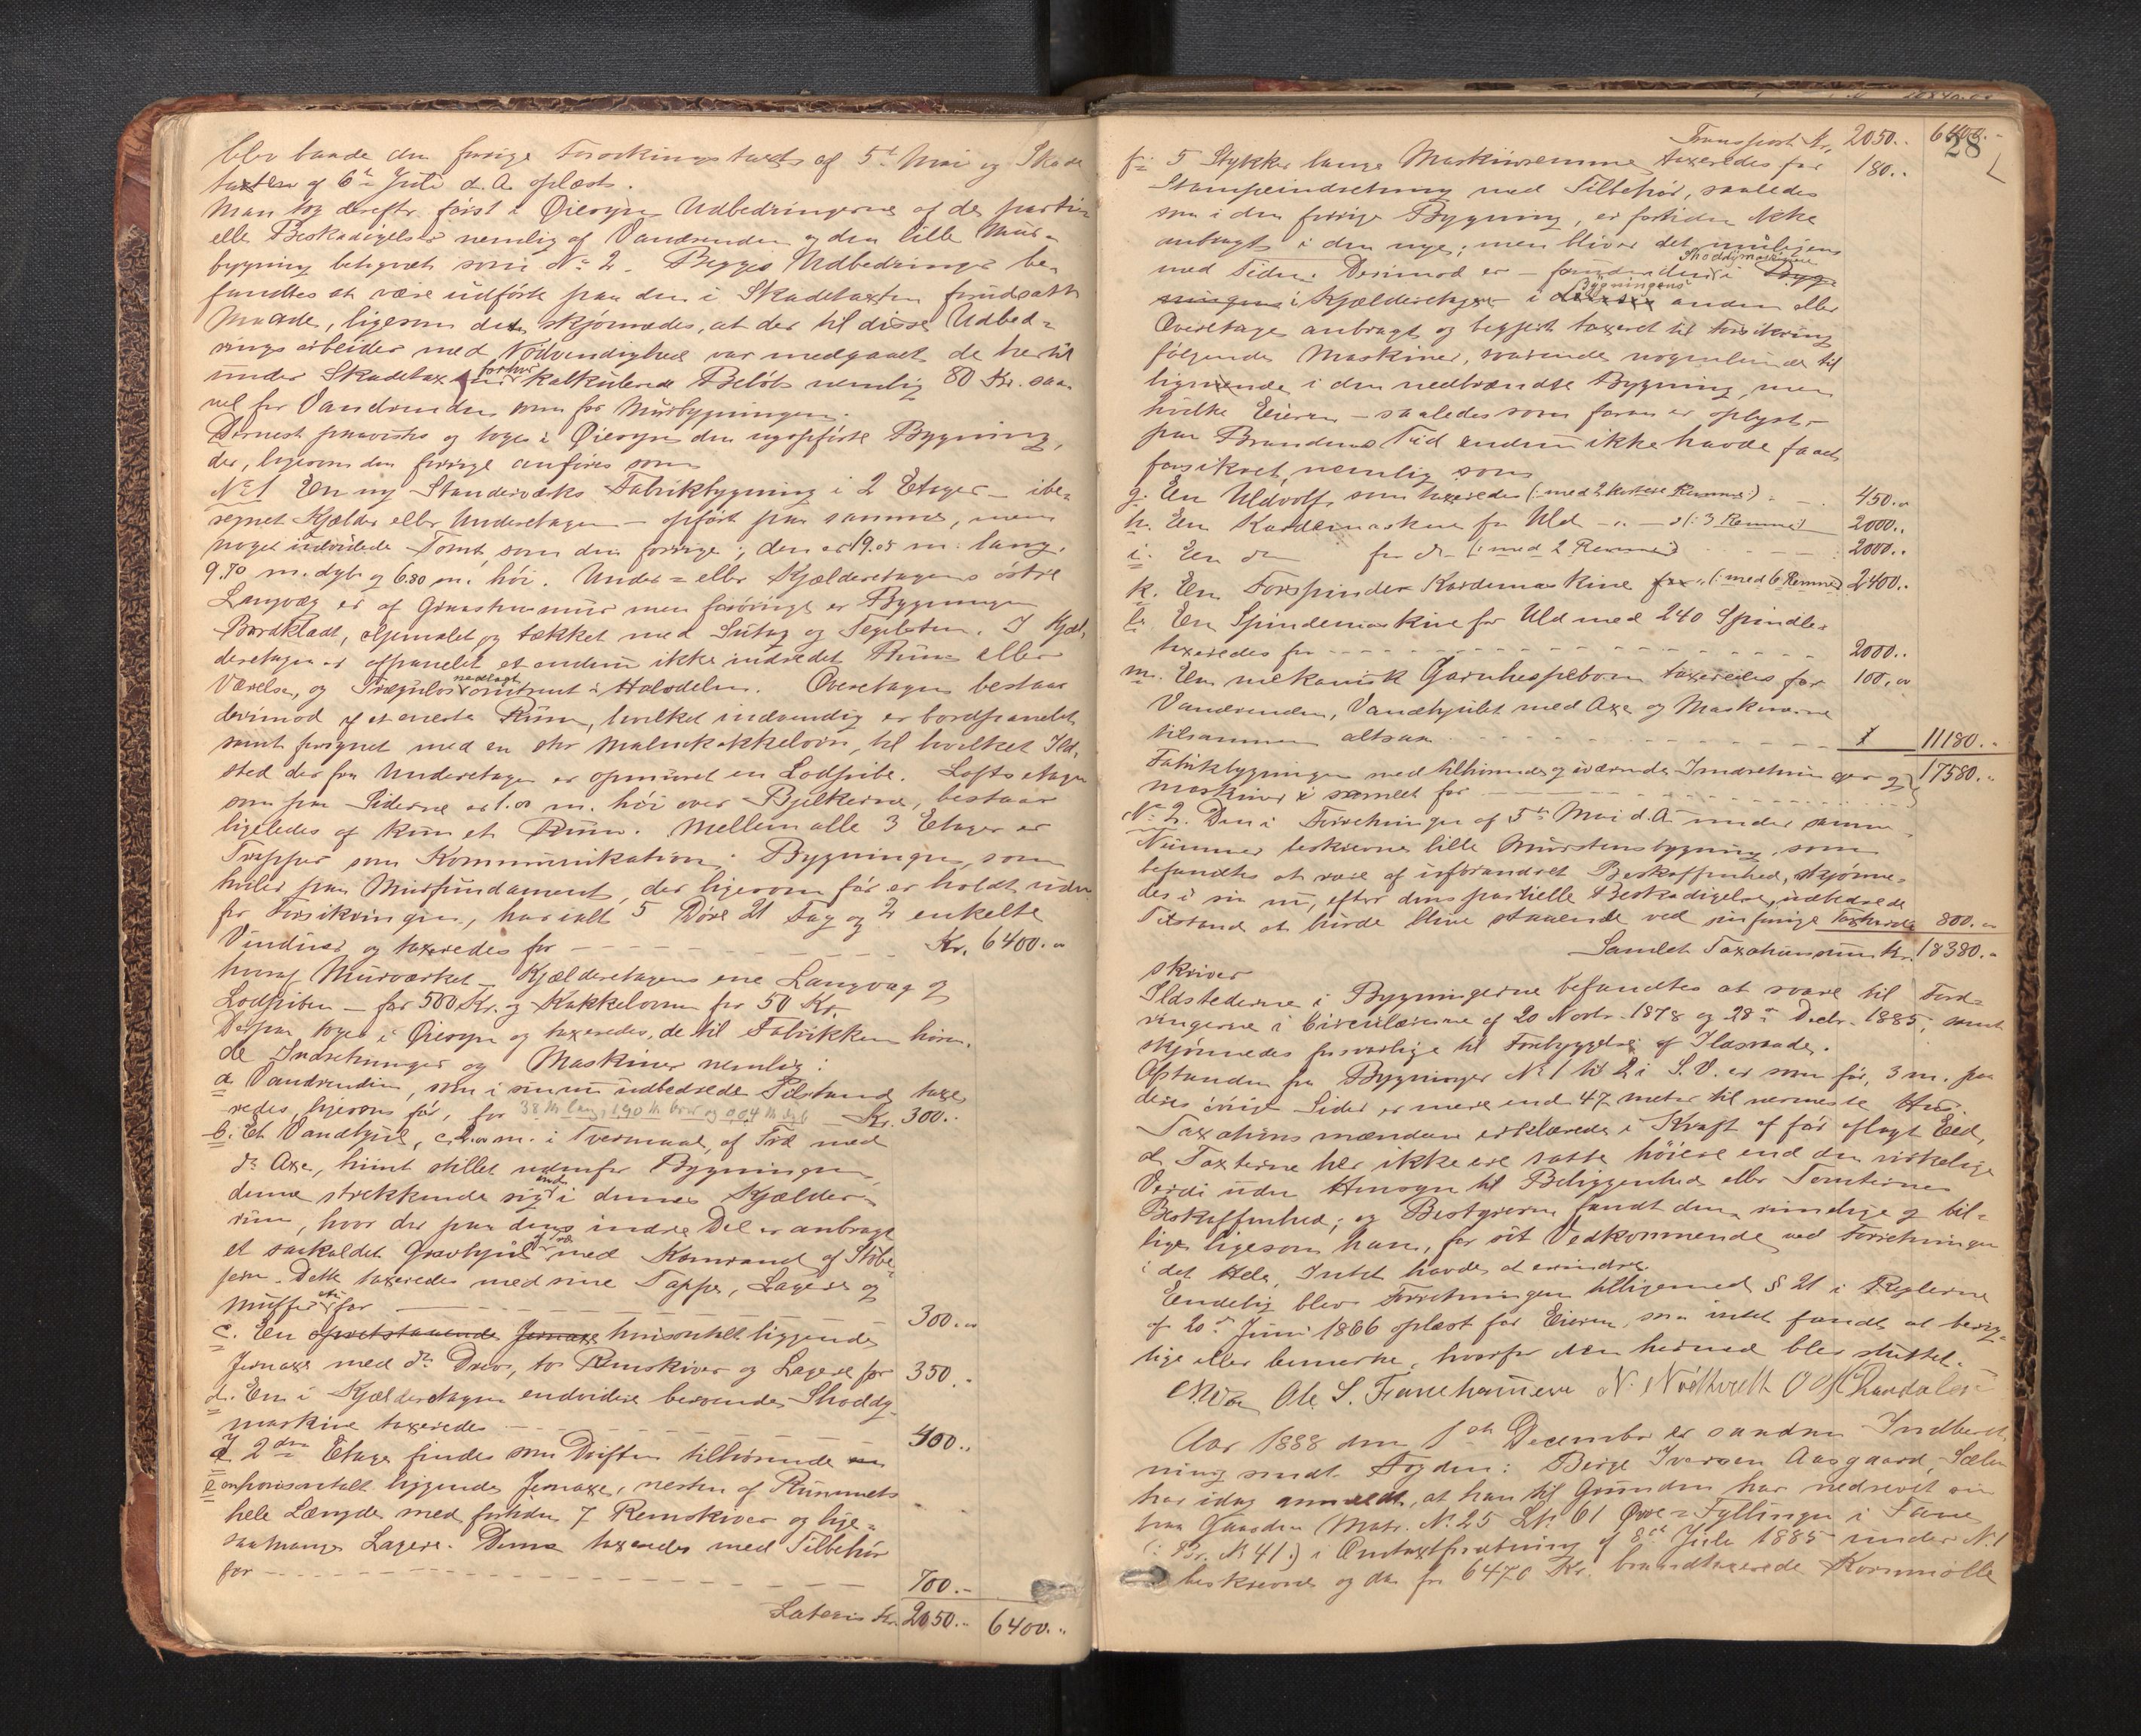 blev baade den forrige Forsikringstaxt af 5t Mai og Skade
taxten af 6te Juli d. A. oplæst.
Man tog derefter først i Øiesyn Udbedringerne af de parti-
elle Beskadigelser nemlig af Vandrenden og den lille Mur-
bygning betegnet som No 2. Begges Udbedringer be-
fandtes at være udført paa den i Skadetaxten forudsatte
Maade, ligesom det skjønnedes, at der til disse Udbed-
ringsarbeider med Nødvendighed var medgaaet de hertil
under Skadetaxten forhen kalkulerede Beløb nemlig 80 Kr. saa-
vel for Vandrenden som for Murbygningen.
Dernest paavistes og toges i Øiesyn den nyopførte Bygning,
der, ligesom den forrige anføres som
No 1 En ny Standerværks Fabrikbygning i 2 Etager – ibe-
regnet Kjælder eller Underetagen – opført paa samme, men
noget udvidede Tomt som den forrige; den er 19.05 m. lang,
9.70 m. dyb og 6.80 m. høi. Under- eller Kjælderetagens østre
Langvæg er af Graastensmur men forøvrigt er Bygningen
Bordklædt, oljemalet og tækket med Sutag og Tegelsten. I Kjæl-
deretagen er afpanelet et endnu ikke indredet Rum eller
Værelse, og Trægulv nedlagt omtrent i Halvdelen. Overetagen bestaar
derimod af et eneste Rum, hvilket indvendig er bordpanelet
samt forsynet med en stor Malmkakkelovn, til hvilket Ild-
sted der fra Underetagen er opmuret en Lodpibe. Loftsetagen
som paa Siderne er 1.00 m. høi over Bjelkerne, bestaar
ligeledes af kun et Rum. Mellem alle 3 Etager er
Trapper som Kommunikation. Bygningen, som
hviler paa Murfundament, der ligesom før er holdt uden-
for Forsikringen, har ialt 5 Døre 21 Fag og 2 enkelte
Vinduer og taxeredes for – – – Kr. 6400.00
hvoraf Murværket – Kjælderetagens ene Langvæg og
Lodpiben – for 500 Kr. og Kakkelovnen for 50 Kr.
Derpaa toges i Øiesyn og taxeredes de til Fabrikken høren-
de Indretninger og Maskiner nemlig:
a Vandrenden, som i sin nu udbedrede Tilstand taxe-
redes, ligesom før, for 38 M lang, 1.90 M bred og 0,04 M dyb Kr. 300.-
b. Et Vandhjul, c. 2.00 m. i Tvermaal, af Træ med
do Axe, hvint stillet udenfor Bygningen,
denne strekkende sig ind i dennes Kjælder-
rum, hvor der paa dens indre Del er anbragt
et saakaldet Gravhjul af Træ med Kamrand af Støbe-
jern. Dette taxeredes med sine Tapper, Lagere og
Muffer etc for – – – 300.00
c. En opretstaaende Jernaxe horisontalt liggende
Jernaxe med do Drev, to Remskiver og Lagere for 350.-
d. En i Kjælderetagen endvidere beroende Shoddy-
maskine taxeredes – – – 400..
I 2den Etage findes som Driften tilhørende en
e en horisontalt liggende Jernaxe, nesten af Rummets
hele Længde med fortiden 7 Remskiver og lige-
saamange Lagere. Denne taxeredes med Tilbehør
for – – – 700.-
Lateris Kr. 2050.- 6400..
28
Transport Kr. 2050.. 6400.-
f: 5 Stykker lange Maskinremme taxeredes for 180..
Stampeindretning med Tilbehør, saaledes
som i den forrige Bygning, er fortiden ikke
anbragt i den nye; men bliver det muligens
med Tiden. Derimod er – foruden den Shoddymaskine i Byg-
ningens i Kjælderetagen – i Bygningens anden eller
Overetage anbragt og begjært taxeret til Forsikring
følgende Maskiner, svarende nogenlunde til
lignende i den nedbrændte Bygning, men
hvilke Eieren – saaledes som foran er oplyst –
paa Brandens Tid endnu ikke havde faaet
forsikret, nemlig som
g. En Uldvolf, som taxeredes (: med 2 kortere Remme:) – 450.00
h. En Kardemaskine for Uld – " – (: 3 Remme) 2000..
i. En do for do (: med 2 Remme) – – – 2000..
k. En Forspinder Kardemaskine for " (: med 6 Remme) 2400..
l. En Spindemaskine for Uld med 240 Spindler
taxeredes for – – – 2000..
m. En mekanisk Garnhespebom taxeredes for 100.00
Vandrenden, Vandhjulet med Axe og Maskinerne
tilsammen altsaa – – – 11180..
Fabrikbygningen med tilhørende og iværende Indretninger og
Maskiner i samlet for – – – 17580..
No 2. Den i Forretningen af 5te Mai d. A. under samme
Nummer beskrevne lille Murstensbygning, som
befandtes at være af uforandret Beskaffenhed, skjønne-
des i sin nu, efter dens partielle Beskadigelse, udbedrede
Tilstand at burde blive staaende ved sin forrige Taxtværdi 800.00
Samlet Taxationssum Kr. 18380.-
skriver
Ildstederne i Bygningerne befandtes at svare til Ford-
ringerne i Circulærerne af 20 Novbr. 1878 og 28de Decbr. 1885, samt
skjønnedes forsvarlige til Forebyggelse af Ildsvaade.
Afstanden fra Bygninger No 1 til 2 i S.V. er som før, 3 m. paa
deres øvrige Sider er mere end 47 meter til nærmeste Hus.
Taxationsmændene erklærede i Kraft af før aflagt Eed,
at Taxterne her ikke ere satte høiere end den virkelige
Værdi uden Hensyn til Beliggenhed eller Tomternes
Beskaffenhed; og Bestyreren fandt dem rimelige og bil-
lige ligesom han, for sit Vedkommende ved Forretningen
i det Hele, Intet havde at erindre.
Endelig blev Forretningen tilligemed § 21 i Reglerne
af 20de Juni 1866 oplæst for Eieren, som intet fandt at berig-
tige eller bemerke, hvorfor den hermed blev sluttet.
Ole. S. Tranehammeren N. Nødtvedt
Aar 1888 den 1ste December er saadan Indberet-
ning sendt Fogden: Berge Iversen Aasgaard, Sælen
har idag anmeldt, at han til Grunden har nedrevet sin
paa Gaarden Matr. No 25 Lb. 61 Øvre Fyllingen i Fane
(: Br. No 41.) i Omtaxtforretning af 8de Juli 1885 under No 1
beskrevne og da for 6470 Kr. brandtaxerede Kornmølle